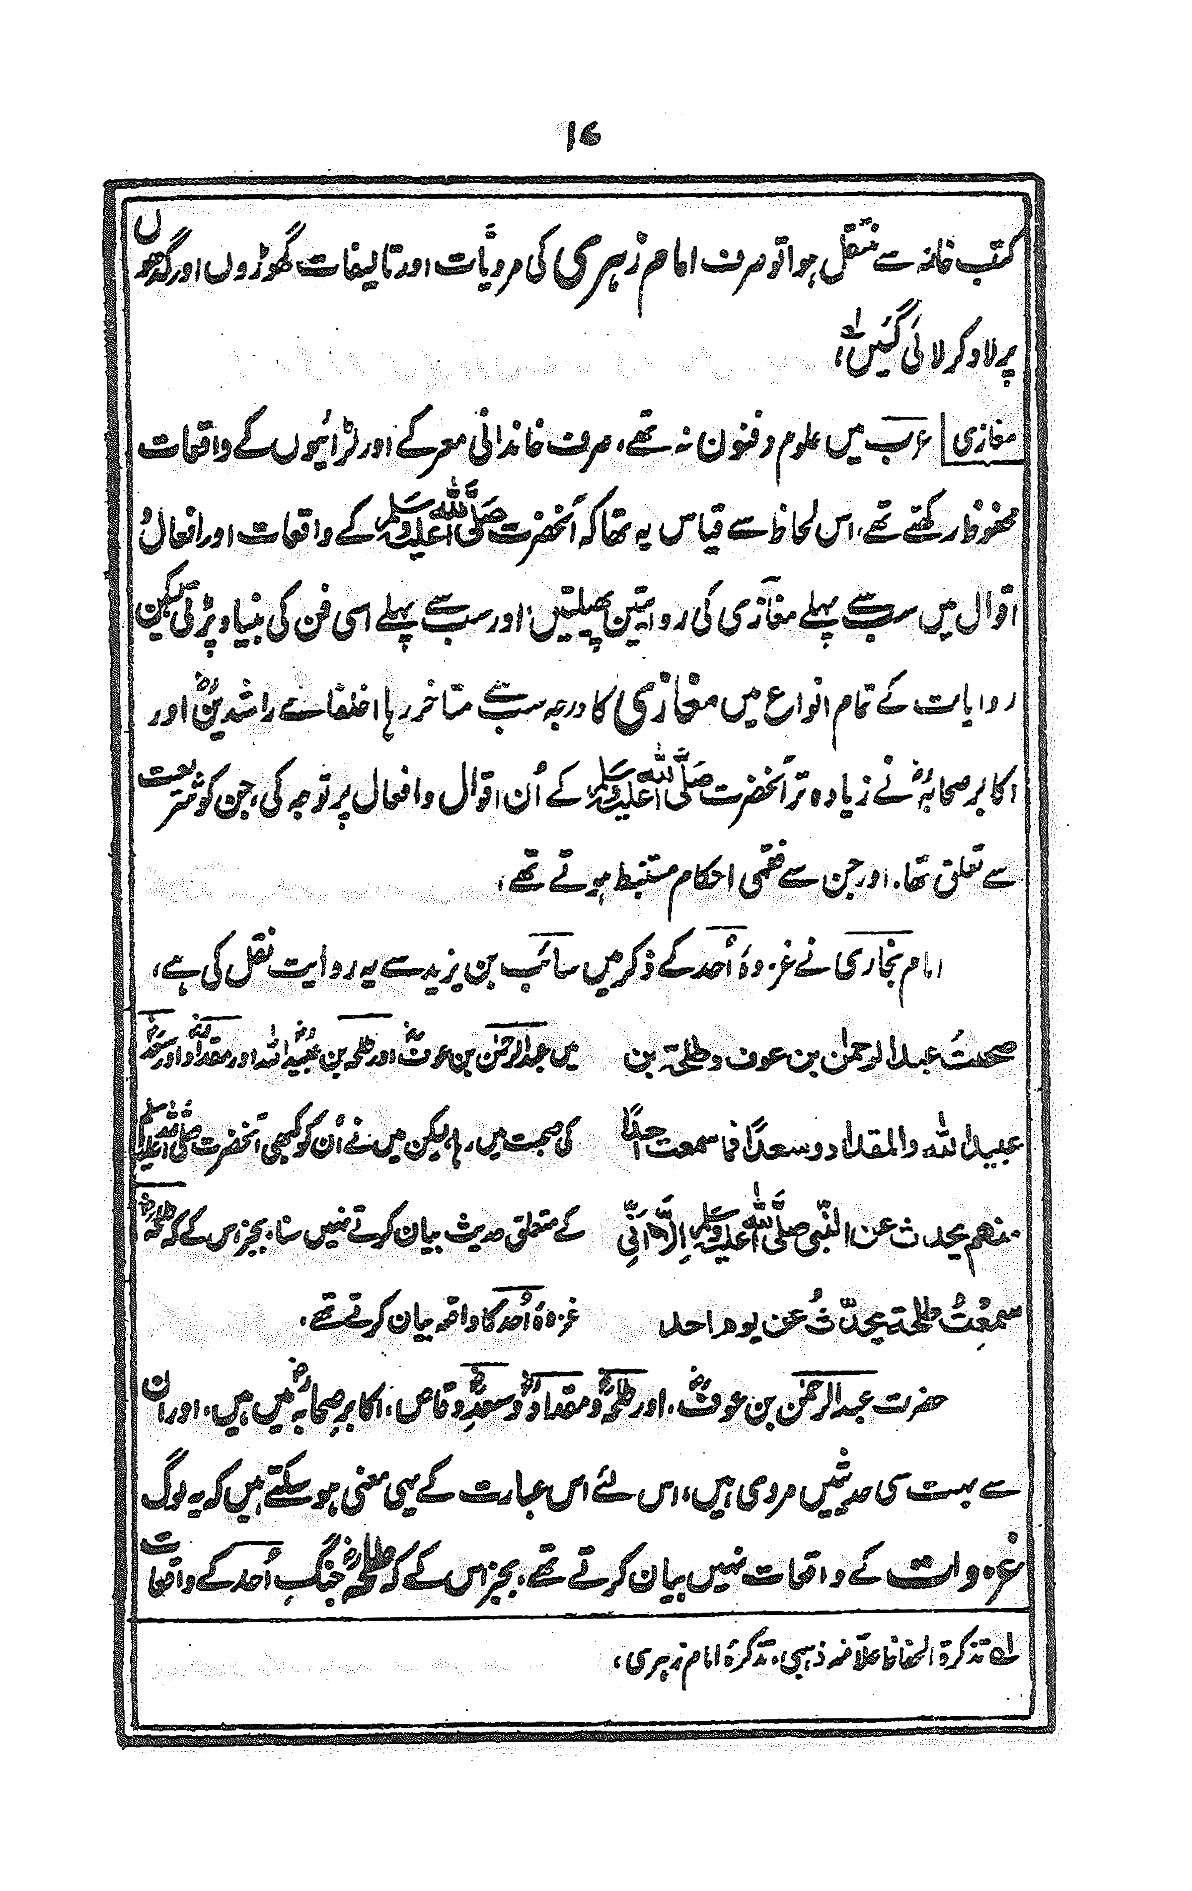 ۱۷
کتب خانہ سے منتقل ہوا تو صرف امام زہری کی مرویات اور تالیفات گھوڑوں اور گدھوں
پر لاد کر لائی گئیں لہ،
مغازی عرب میں علوم و فنون نہ تھے، صرف خاندانی معرکے اور لڑائیوں کے واقعات
محفوظ رکھتے تھے، اس لحاظ سے قیاس یہ تھا کہ آنحضرت صلّی اللہ علیہ وسلم کے واقعات اور افعال و
اقوال میں سب سے پہلے مغازی کی روایتیں پھیلتیں، اور سب سے پہلے اسی فن کی بنیاد پڑتی لیکن
روایات کے تمام انواع میں مغازی کا درجہ سب سے متاخر رہا، خلفائے راشدینؓ اور
اکابر صحابہؓ نے زیادہ تر آنحضرت صلّی اللہ علیہ وسلم کے اُن اقوال و افعال پر توجہ کی، جن کو شریعت
سے تعلق تھا، اور جن سے فقہی احکام مستنبط ہوتے تھے،
امام بخاری نے غزوۂ اُحد کے ذکر میں سائب بن یزید سے یہ روایت نقل کی ہے،
صحبتُ عبد الرحمٰن بن عوف و طلحۃ بن
عبید اللہ والمقداد و سعدًا فما سمعت احدًا
منھم یحدث عن النّبی صلّی اللہ علیہ وسلم اِلّا انّی
سمِعْتُ طلحۃ یحدّثُ عن یوم احد
میں عبد الرحمٰن بن عوفؓ اور طلحہ بن عُبیدؓ اللہ اور مقدادؓ اور سعدؓ
کی صحبت میں رہا، لیکن میں نے اُن کو کبھی آنحضرت صلی اللہ علیہ وسلم
کے متعلق حدیث بیان کرتے نہیں سنا، بجز اس کے کہ طلحہؓ
غزوۂ اُحد کا واقعہ بیان کرتے تھے،
حضرت عبد الرحمٰن بن عوفؓ، اور طلحہؓ و مقدادؓ و سعدؓ وقاص، اکابرِ صحابہؓ میں ہیں، اور ان
سے بہت سی حدیثیں مروی ہیں، اس لئے اس عبارت کے یہی معنی ہو سکتے ہیں کہ یہ لوگ
غزوات کے واقعات نہیں بیان کرتے تھے، بجز اس کے کہ طلحہؓ جنگِ اُحد کے واقعات
لہ تذکرۃ الحفاظ علّامہ ذہبی، تذکرۂ امام زہری،